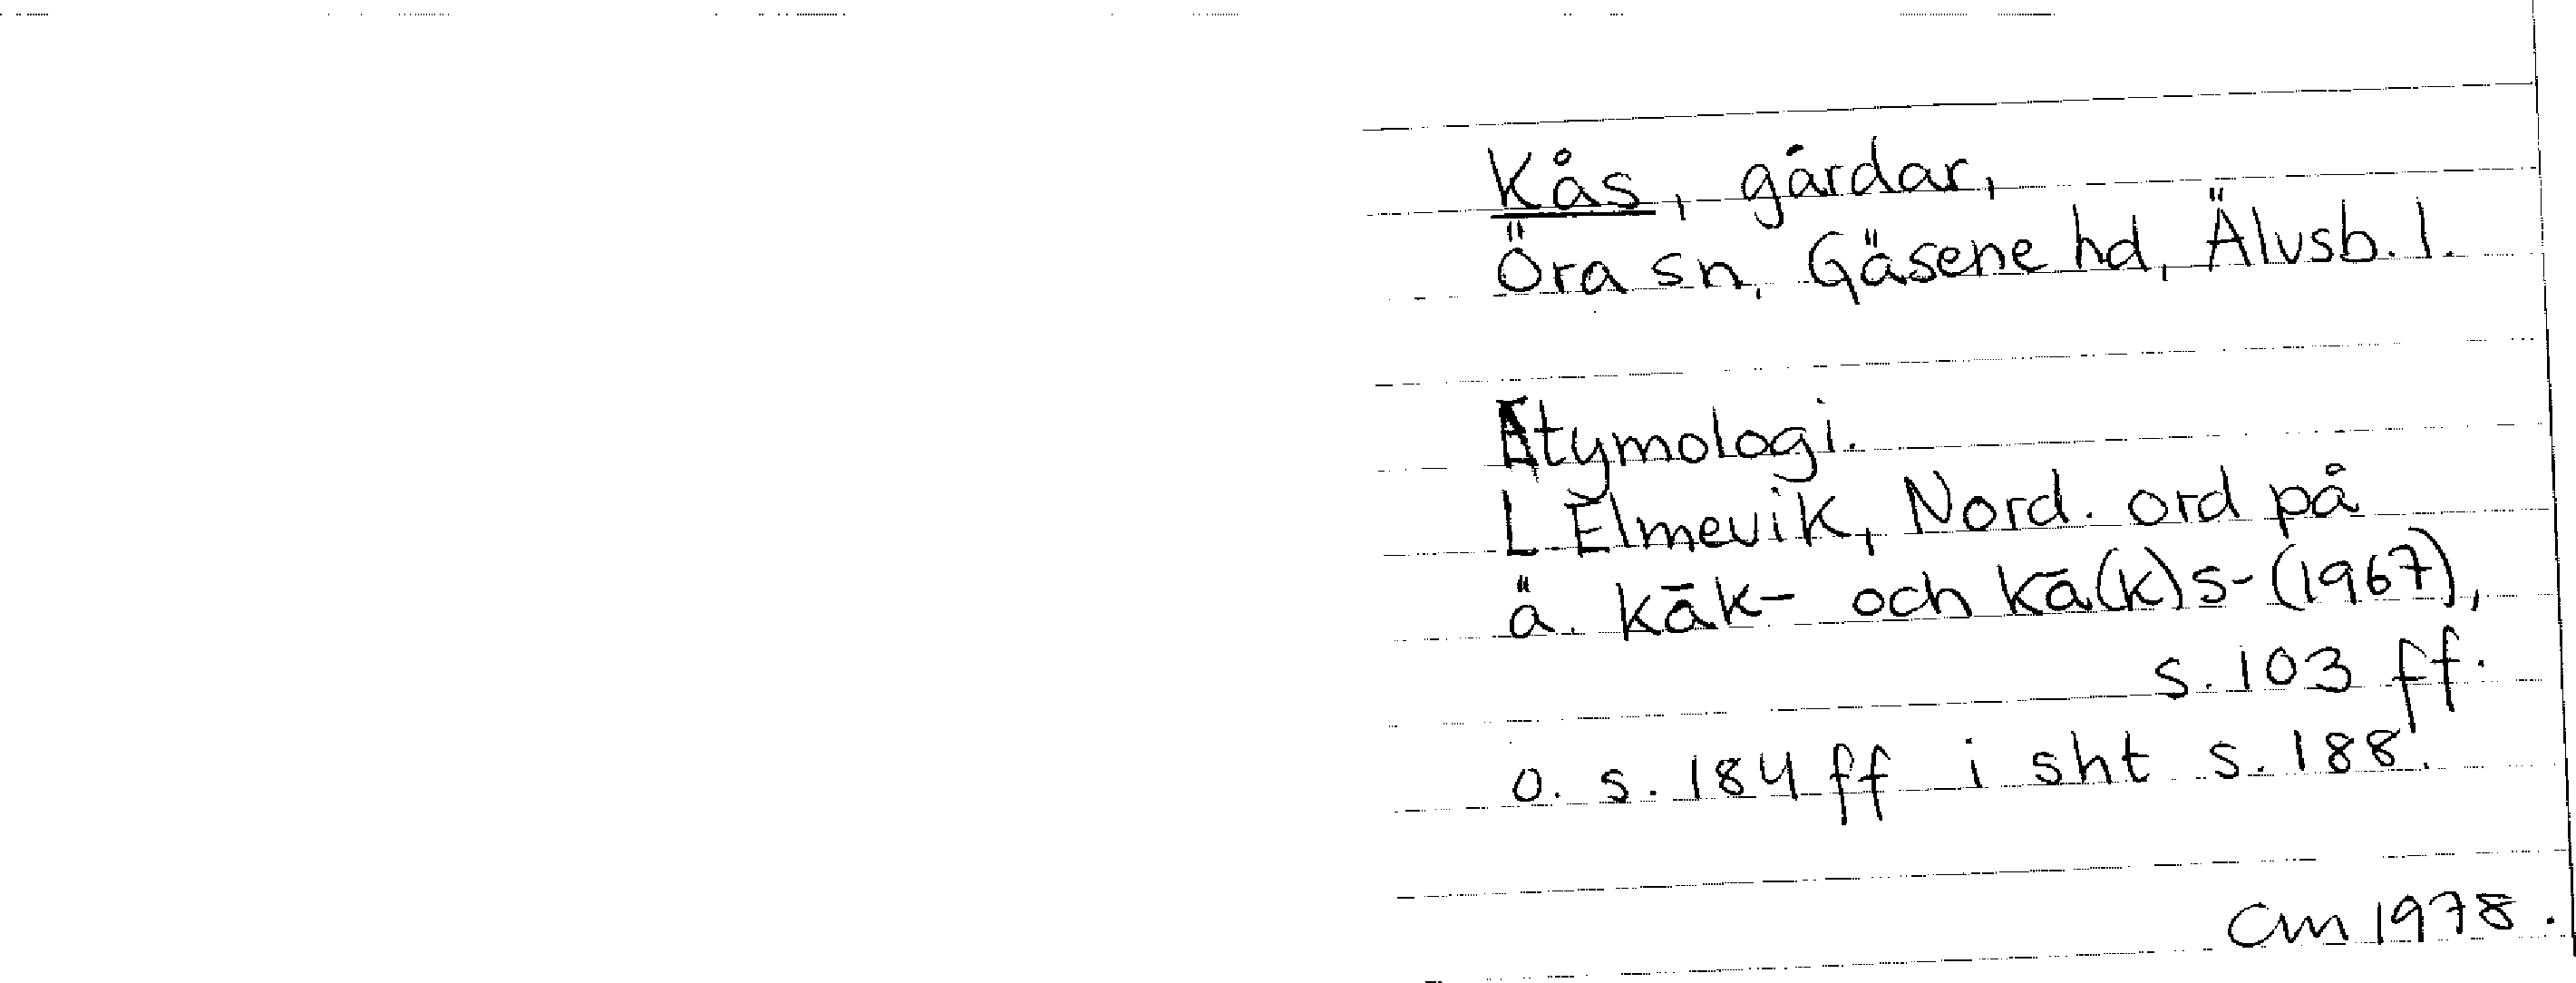 Kås, gårdar,
Öra sn, Gäsene hd, Älvsb. l.
Etymologi.
L Elmevik, Nord. ord på
ä. kāk- och kā(k)s- (1967),
s. 103 ff.
o. s. 184 ff i sht s. 188.
CM 1978.